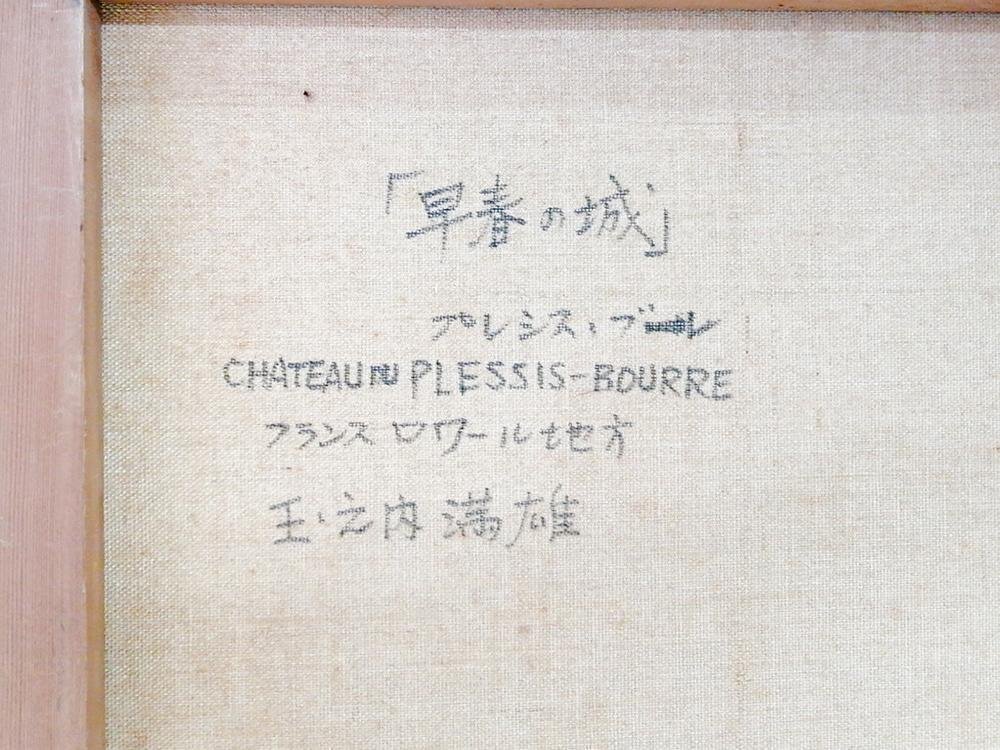 「早春の城」
プレシス・ブール
CHATEAU PLESSIS-BOURRE
フランス ロワール地方
玉之内満雄